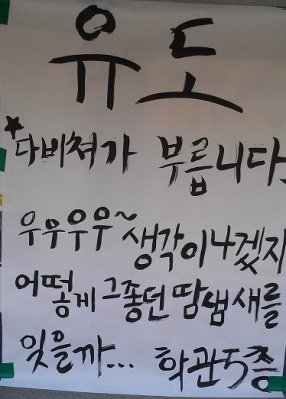 유도
★다비쳐가 부릅니다
우우우우~ 생각이나겠지
어떻게 그좋던 땀냄새를
잊을까... 학관5층